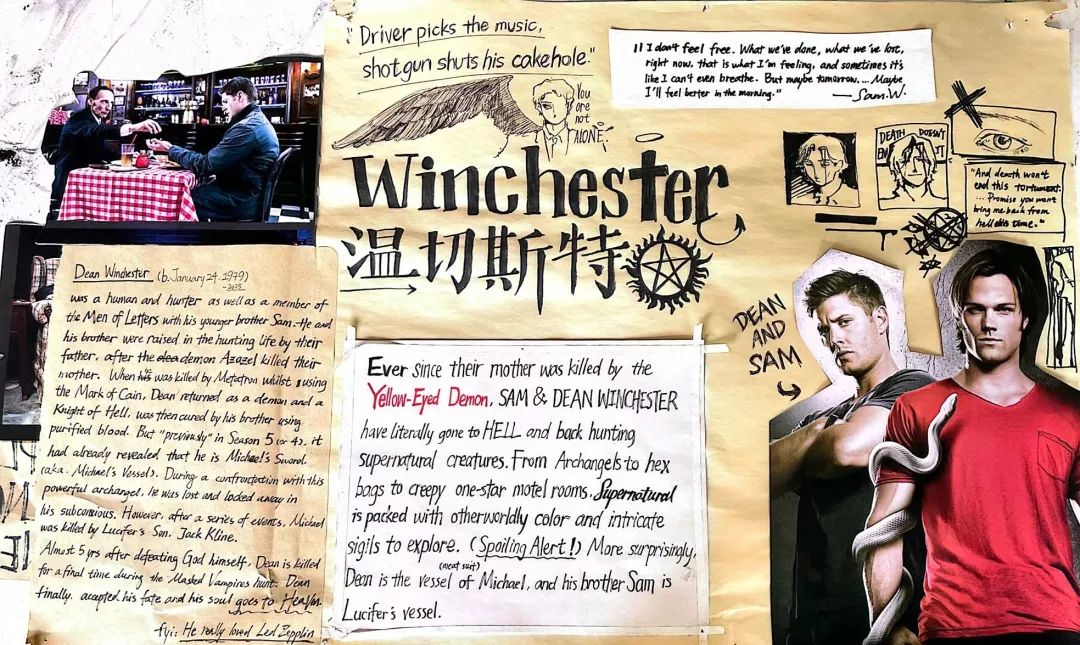 "Driver picks the music,
shotgun shuts his cakehole."
You
are
not
ALONE
" I don't feel free. What we've done, what we've lost,
right now, that is what I'm feeling, and sometimes it's
like I can't even breathe. But maybe tomorrow.... Maybe
I'll feel better in the morning."
— Sam.W.
Winchester
温切斯特
DEATH DOESN'T
"And death won't
end this
... Promise you won't
bring me back from
hell this time."
Dean Winchester (b. January 24. 1979)
was a human and hunter as well as a member of
the Men of Letters with his younger brother Sam. He and
his brother were raised in the hunting life by their
father, after the demon Azazel killed their
mother. When was killed by Metatron whilst using
the Mark of Cain, Dean returned as a demon and a
Knight of Hell, was then cured by his brother using
purified blood. But "previously" in Season 5 (or 4), it
had already revealed that he is Michael's Sword
(aka. Michael's Vessel). During a confrontation with this
powerful archangel, he was lost and locked away in
his subconsious. However, after a series of events, Michael
was killed by Lucifer's Son, Jack Kline.
Almost 5 yrs after defeating God himself, Dean is killed
for a final time during the Masked Vampires hunt. Dean
finally accepted his fate and his soul goes to Heaven.
fyi: He really loved Led Zepplin
Ever since their mother was killed by the
Yellow-Eyed Demon, SAM & DEAN WINCHESTER
have literally gone to HELL and back hunting
supernatural creatures. From Archangels to hex
bags to creepy one-star motel rooms, Supernatural
is packed with otherworldly color and intricate
sigils to explore. (Spoiling Alert!) More surprisingly,
(meat suit)
Dean is the vessel of Michael, and his brother Sam is
Lucifer's vessel.
DEAN
AND
SAM